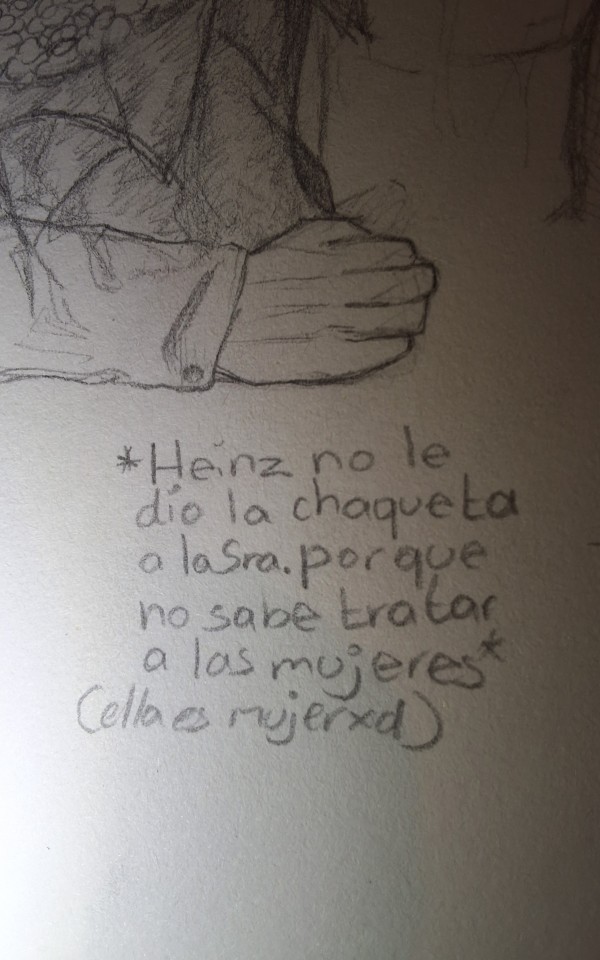 *Heinz no le
dio la chaqueta
a la Sra. porque
no sabe tratar
a las mujeres*
(ella es mujer xd)